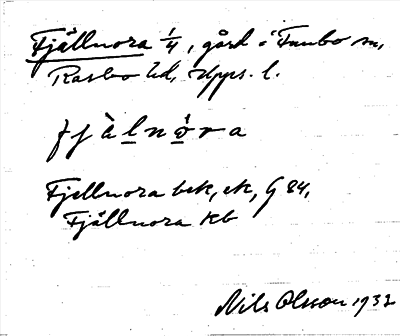 Fjällnora 1/4, gård i Funbo sn,
Rasbo hd, Upps. l.
fjä̀lnǫ̀ra
Fjellnora bek, ek, G 84,
Fjällnora Kb
Nils Olsson 1932